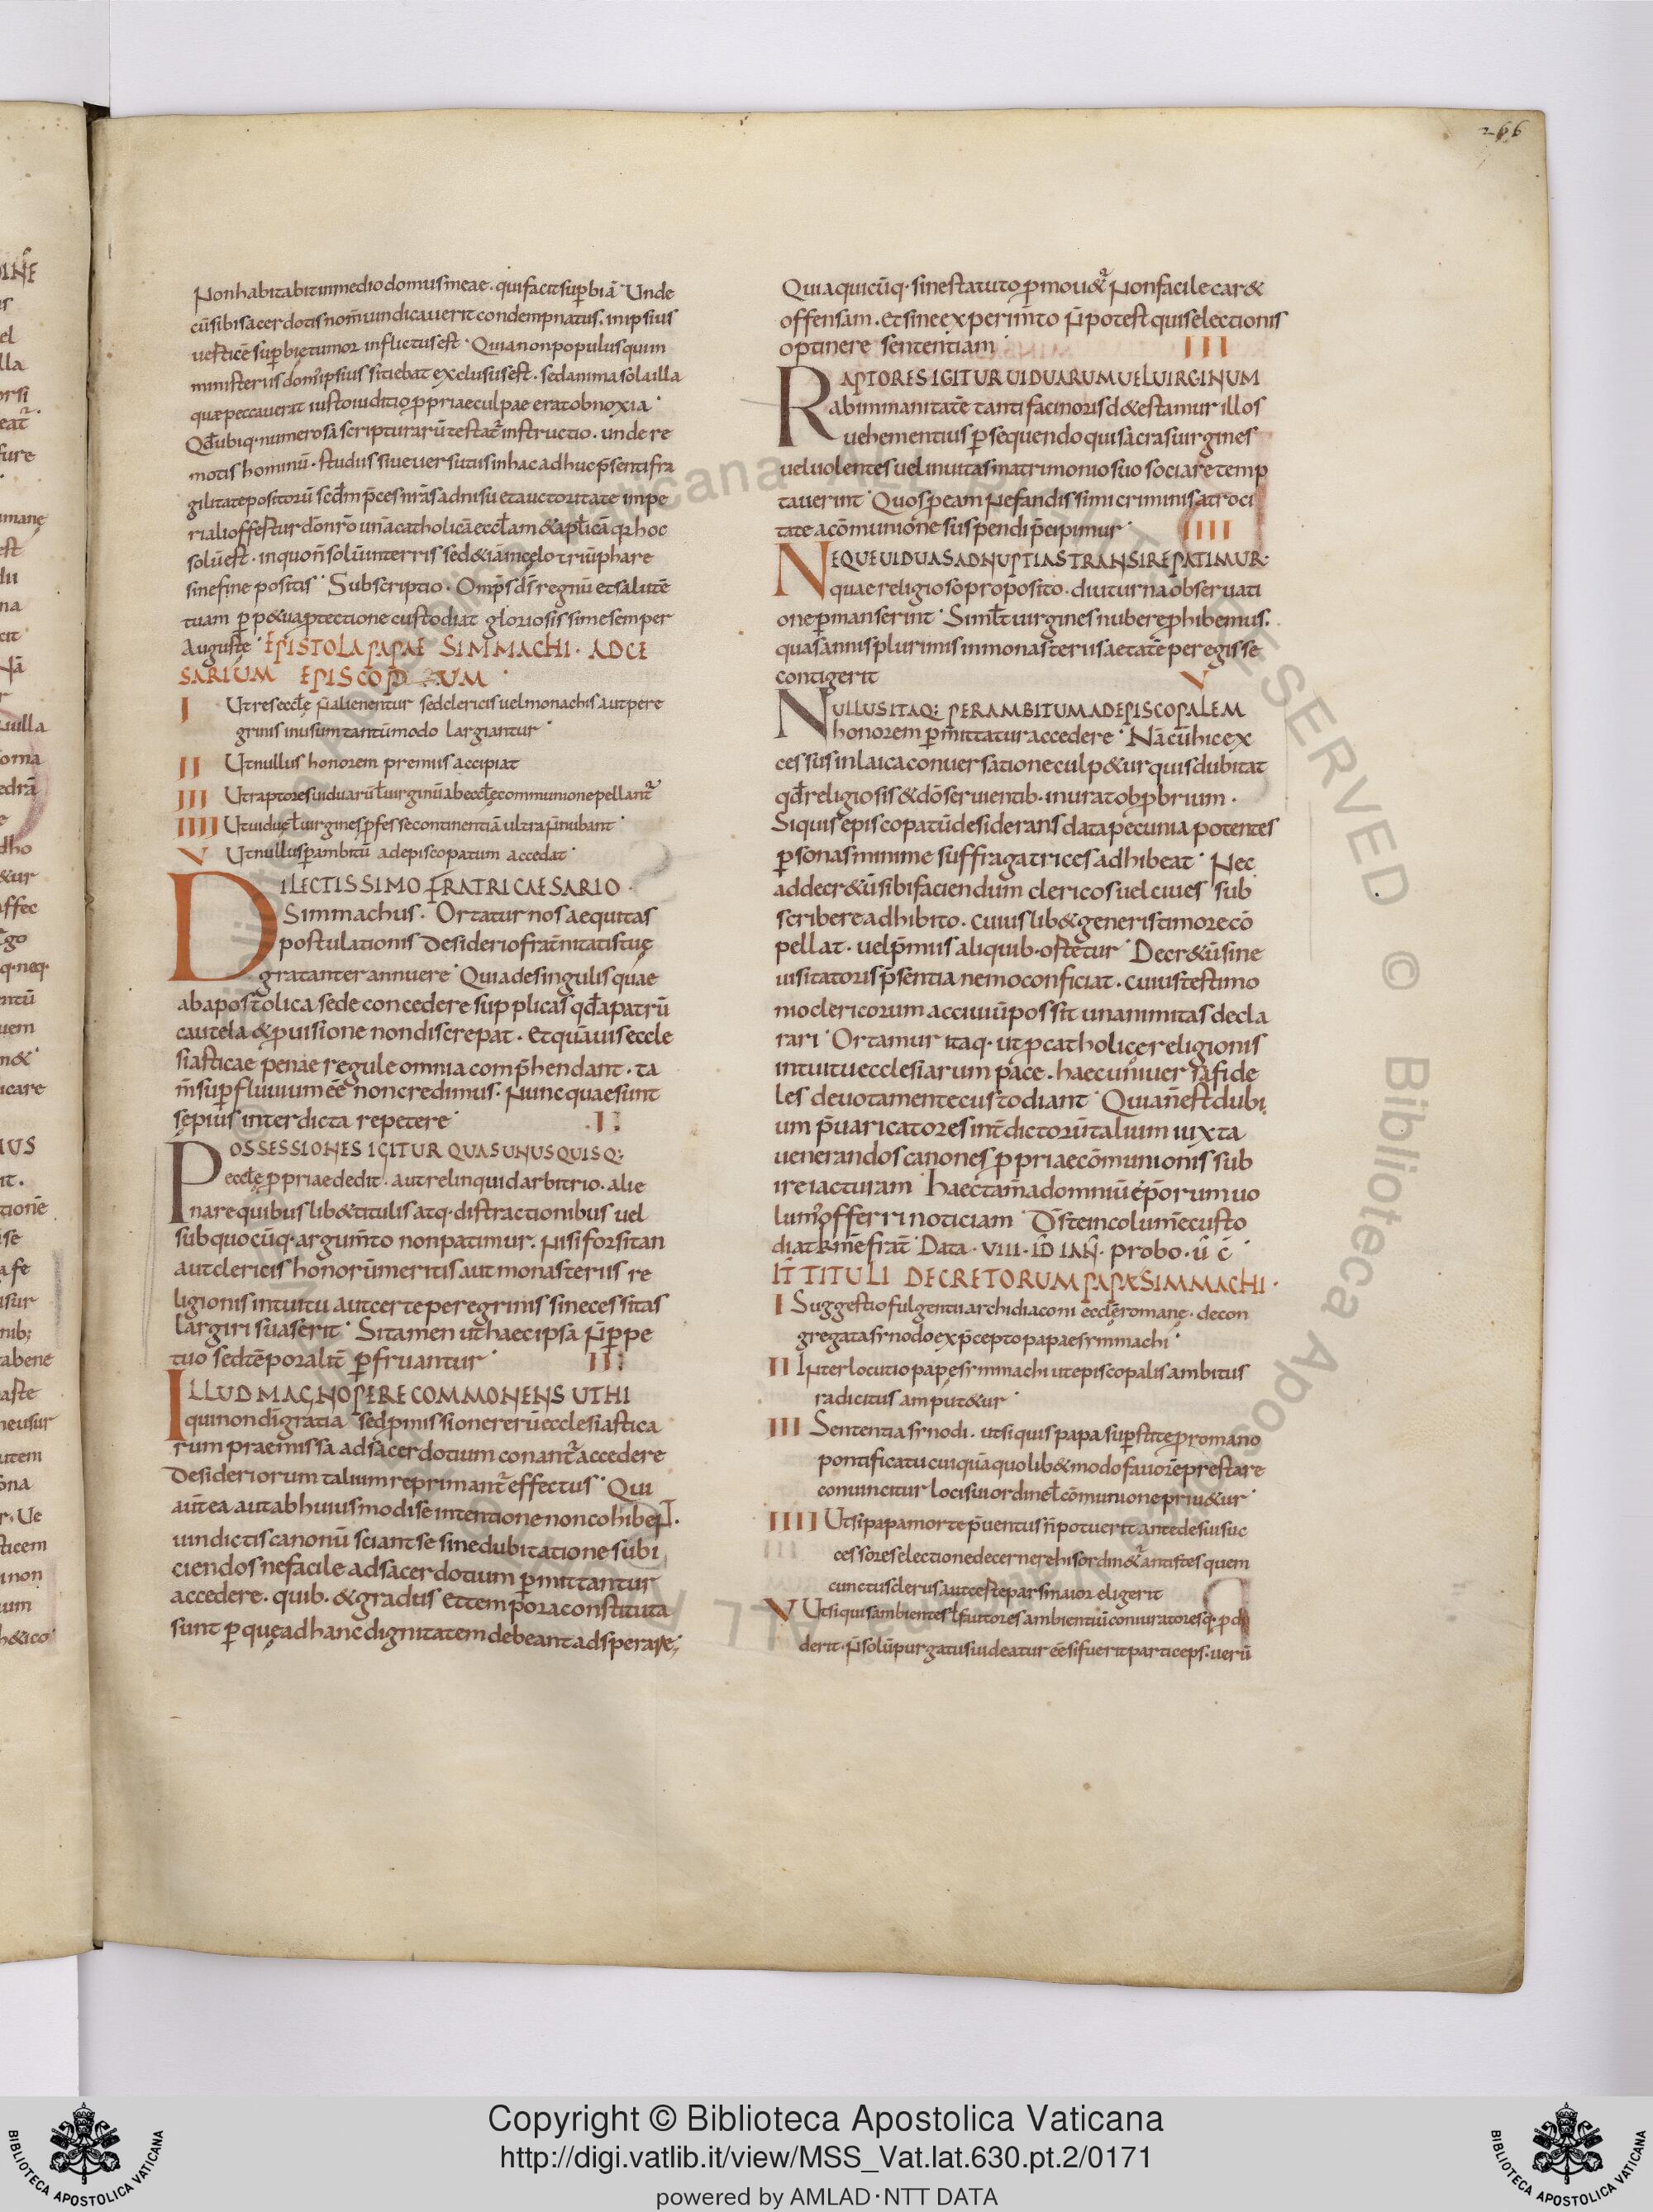 266
Non habitabit in medio domus meae · qui facit suꝑbiā · Unde
cū sibi sacerdotis nom̄ uindicauerit condempnatus · in ipsius
uesticē suꝑbię tumor inflictus est · Quia non populus qui in
ministeriis dom̄ ipsius sitiebat exclusus est · sed anima sola illa
quæ peccauerat iusto iuditio ꝓpriae culpae erat obnoxia ·
Qđ ubiq · numerosa scripturarū testat̄ instructio · unde re
motis hominū · studiis siue uersutiis in hac adhuc p̄senti fra
gilitate positorū scđm p̄ces nr̄as adnisu et auctoritate impe
riali offestur dōn r̄o unā catholicā eccl̄am & apl̄icā qr hoc
solū est · in quo n̄ solū in terris sed & iā in cęlo triūphare
sine fine positis · Subscriptio · Omp̄s d̄s regnū et salutē
tuam ꝑp&ua ꝓtectione custodiat gloriosissime semper
Auguste · EPISTOLA PAPAE SIMMACHI · AD CE
SARIUM EPISCOP UM ·
I Ut res eccl̄e n̄ alienentur sed clericis uel monachis aut pere
grinis in usum tantūmodo largiantur ·
II Ut nullus honorem premiis accipiat
III Ut raptores uiduarū ł uirginū ab eccl̄ę communione pellant̄
IIII Ut uiduę ł uirgines ꝓfesse continentiā ultra n̄ nubant ·
V Ut nullus ꝑ ambitū ad episcopatum accedat ·
DILECTISSIMO FRATRI CAESARIO ·
Simmachus · Ortatur nos aequitas
postulationis desiderio frat̄nitatis tuę
gratanter annuere · Quia de singulis quae
ab apostolica sede concedere supplicas qđ a patrū
cautela & ꝓuisione non discrepat · et quāuis eccle
siasticae penae regule omnia comp̄hendant · ta
m̄ suꝑfluuium ēē non credimus · Nunc quae sunt
sępius interdicta repetere · I :
POSSESSIONES IGITUR QUAS UNUSQUISQ :
eccl̄ę ꝓpriae dedit · aut relinquid arbitrio · alie
nare quibus lib& titulis atq · distractionibus uel
sub quocūq · argum̄to non patimur · Nisi forsitan
aut clericis honorū meritis aut monasteriis re
ligionis intuitu aut certe peregrinis si necessitas
largiri suaserit · Si tamen ut haec ipsa n̄ ꝑpe
tuo sed tēporalit̄ ꝑfruantur · II :
ILLUD MAGNOPERE COMMONENS UT HI
qui non dī gratia sed ꝓmissione rerū ecclesiastica
rum praemissa ad sacerdotium conant̄ accedere
desideriorum talium reprimant̄ effectus · Qui
aūt ea aut ab huiusmodi se intentione non cohibet ·
uindictis canonū sciant se sine dubitatione subi
ciendos ne facile ad sacerdotium ꝑmittantur
accedere · quib · & gradus et tempora constituta
sunt ꝑ quę ad hanc dignitatem debeant adsperare ;
Quia quicūq · sine statuto ꝓmou&̄ Non facile car&
offensam · et sine experim̄to n̄ potest quis electionis
optinere sententiam · III
RAPTORES IGITUR UIDUARUM UEL UIRGINUM
ab inmanitatē tanti facinoris d&estamur illos
uehementius ꝑsequendo qui sacras uirgines
uel uolentes uel inuitas matrimonio suo sociare temp
tauerint · Quos ꝓ eam Nefandissimi criminis atroci
tate a cōmunione suspendi p̄cipimur · IIII
NEQUE UIDUAS AD NUPTIAS TRANSIRE PATIMUR ·
quae religioso proposito · diuturna obseruati
one ꝑmanserint · Simił uirgines nubere ꝓhibemus ·
quas annis plurimis in monasteriis aetatē peregisse
contigerit V
NULLUS ITAQ : PER AMBITUM AD EPISCOPALEM
honorem ꝑmittatur accedere · Nā cū hic ex
cessus in laica conuersatione culp&ur quis dubitat
qđ religiosis & dō seruientib · inurat obꝓbrium ·
Si quis episcopatū desiderans data pecunia potentes
ꝑsonas minime suffragatrices adhibeat · Nec
ad decr&ū sibi faciendum clericos uel ciues sub
scribere adhibito · cuiuslib& generis timore cō
pellat · uel p̄miis aliquib · ostetur · Decr&ū sine
uisitatoris p̄sentia nemo conficiat · cuius testimo
nio clericorum ac ciuiū possit unanimitas decla
rari · Ortamur itaq · ut ꝓ catholicę religionis
intuitu ecclesiarum pace · haec uniuersa fide
les deuota mente custodiant · Quia n̄ est dubi
um p̄uaricatores int̄dictorū talium iuxta
uenerandos canones ꝓpriae cōmunionis sub
ire iacturam · haec tam̄ ad omniū ep̄orum uo
lum̄ offerri noticiam · D̄s te incolumē custo
diat km̄e frat̄ · Data · VIII · ID IAN̄ · probo · ū c̄ ·
IT̄ TITULI DECRETORUM PAPÆ SIMMACHI ·
I Suggestio fulgentii archidiaconi eccl̄ę romanę · de con
gregata synodo ex p̄cepto papae symmachi ·
II Interlocutio papę symmachi ut episcopalis ambitus
radicitus amput&ur ·
III Sententia synodi · ut si quis papa suꝑstite ꝓ romano
pontificatu cuiquā quolib& modo fauorē prestare
conuincitur loci sui ordine ł cōmunione priu&ur ·
IIII Ut si papa morte p̄uentus n̄ potuerit ante de sui suc
cessores electione decernere his ordin&̄ antistes quem
cunctus clerus aut certe pars maior eligerit
V Ut si quis ambientes ł fautores ambientiū coniuratoresq · ꝓdi
derit · n̄ solū purgatus uideatur ēē si fuerit particeps · uerū
Copyright © Biblioteca Apostolica Vaticana
http://digi.vatlib.it/view/MSS_Vat.lat.630.pt.2/0171
powered by AMLAD·NTT DATA
BIBLIOTECA APOSTOLICA VATICANA
BIBLIOTECA APOSTOLICA VATICANA